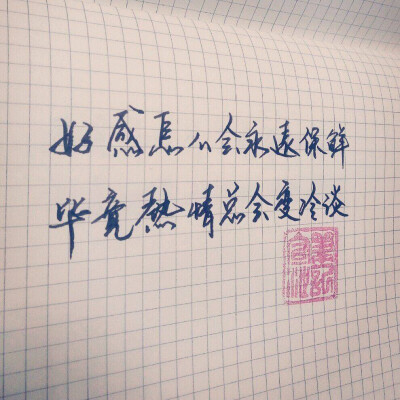 好感怎么会永遠保鲜
毕竟熱情总会变冷淡